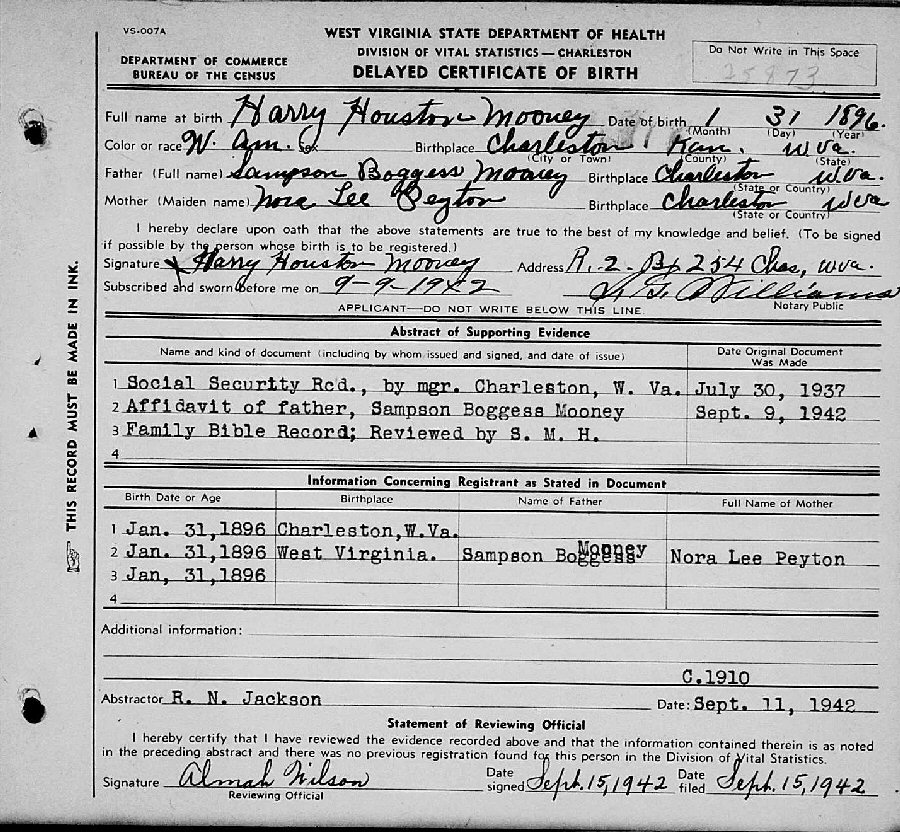 VS-007A
WEST VIRGINIA STATE DEPARTMENT OF HEALTH
DIVISION OF VITAL STATISTICS — CHARLESTON
DEPARTMENT OF COMMERCE
BUREAU OF THE CENSUS
DELAYED CERTIFICATE OF BIRTH
Do Not Write in This Space
25873
Full name at birth Harry Houston Mooney Date of birth 1 31 1896.
(Month) (Day) (Year)
Color or race W. Am. Sex Birthplace Charleston Kan. W Va.
(City or Town) (County) (State)
Father (Full name) Sampson Boggess Mooney Birthplace Charleston W. Va.
(State or Country)
Mother (Maiden name) Nora Lee Peyton Birthplace Charleston W Va
(State or Country)
I hereby declare upon oath that the above statements are true to the best of my knowledge and belief. (To be signed
if possible by the person whose birth is to be registered.)
Signature x Harry Houston Mooney Address R. 2 - Bx 254 Chas, W Va.
Subscribed and sworn before me on 9-9-1942 Williams
Notary Public
APPLICANT—DO NOT WRITE BELOW THIS LINE
THIS RECORD MUST BE MADE IN INK.
Abstract of Supporting Evidence
Name and kind of document (including by whom issued and signed, and date of issue) Date Original Document
Was Made
1 Social Security Rc'd., by mgr. Charleston, W. Va. July 30, 1937
2 Affidavit of father, Sampson Boggess Mooney Sept. 9, 1942
3 Family Bible Record; Reviewed by S. M. H.
4
Information Concerning Registrant as Stated in Document
Birth Date or Age Birthplace Name of Father Full Name of Mother
1 Jan. 31,1896 Charleston,W.Va.
Mooney
2 Jan. 31,1896 West Virginia. Sampson Boggess Nora Lee Peyton
3 Jan, 31,1896
4
Additional information:
C.1910
Abstractor R. N. Jackson Date: Sept. 11, 1942
Statement of Reviewing Official
I hereby certify that I have reviewed the evidence recorded above and that the information contained therein is as noted
in the preceding abstract and there was no previous registration found for this person in the Division of Vital Statistics.
Signature Almah Wilson Date signed Sept. 15, 1942 Date filed Sept. 15, 1942
Reviewing Official